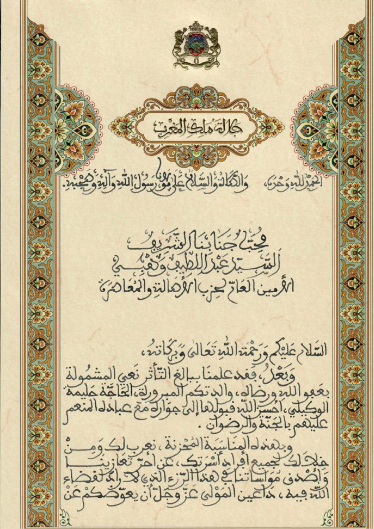 جلالة ملك المغرب
الحمد لله وحده، والصلاة والسلام على مولانا رسول الله وآله وصحبه.
محب جنابنا الشريف
السيد عبد اللطيف وهبي
الأمين العام لحزب الأصالة والمعاصرة
السلام عليكم ورحمة الله تعالى وبركاته،
وبعد، فقد علمنا ببالغ التأثر نعي المشمولة
بعفو الله ورضاه، والدتكم المبرورة، الحاجة خليمة
الوكيلي، أحسن الله قبولها إلى جواره مع عباده المنعم
عليهم بالجنة والرضوان.
وبهذه المناسبة المحزنة، نعرب لك ومن
خلالك لجميع أفراد أسرتك، عن أحر تعازينا
وأصدق مواساتنا في هذا الرزء الذي لا راد لقضاء
الله فيه، داعين المولى عز وجل أن يعوضكم عن